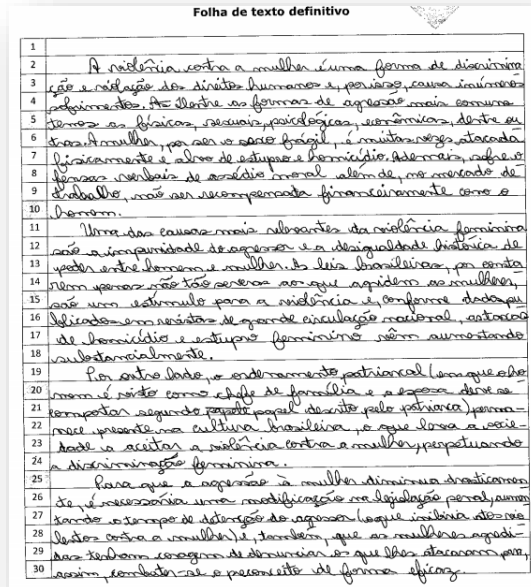 Folha de texto definitivo
1
2 A violência contra a mulher é uma forma de discrimina
3 ção e violação dos direitos humanos e, por isso, causa inúmeros
4 sofrimentos. As Dentre as formas de agressão mais comuns
5 temos as físicas, sexuais, psicológicas, econômicas, dentre ou
6 tras. A mulher, por ser o sexo frágil, é muitas vezes atacada
7 fisicamente e alvo de estupro e homicídio. Ademais, sofre o
8 fensas verbais de assédio moral além de, no mercado de
9 trabalho, não ser recompensada financeiramente como o
10 homem.
11 Uma das causas mais relevantes da violência feminina
12 são a impunidade do agressor e a desigualdade histórica de
13 poder entre homem e mulher. As leis brasileiras, por conta
14 rem penas não tão severas aos que agridem as mulheres,
15 são um estímulo para a violência e, conforme dados pu
16 blicados em revistas de grande circulação nacional, as taxas
17 de homicídio e estupro feminino vêm aumentando
18 substancialmente.
19 Por outro lado, o ordenamento patriarcal (em que o ho
20 mem é visto como chefe de família e a esposa deve se
21 comportar segundo papel descrito pelo patriarca) perma-
22 nece presente na cultura brasileira, o que leva a socie-
23 dade a aceitar a violência contra a mulher, perpetuando
24 a discriminação feminina.
25 Para que a agressão à mulher diminua drasticamen
26 te, é necessária uma modificação na legislação penal, aumen
27 tando o tempo de detenção do agressor (o que inibiria atos vio
28 lentos contra a mulher) e, também, que as mulheres agredi
29 das tenham coragem de denunciar os que lhes atacaram para,
30 assim, combater-se o preconceito de forma eficaz.